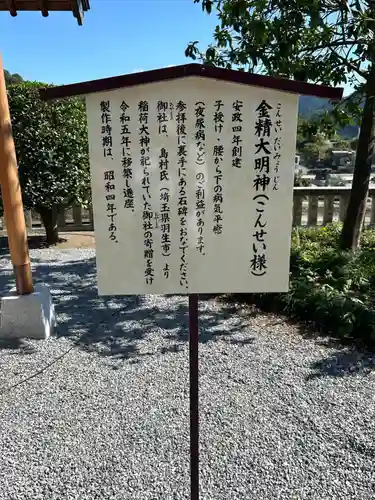 こんせい だいみょうじん
金精大明神(こんせい様)
安政四年創建
子授け・腰から下の病気平癒
(夜尿病など)のご利益があります。
参拝後に裏手にある石碑をおなでください。
御社は、島村氏(埼玉県羽生市)より
稲荷大神が祀られていた御社の寄贈を受け
令和五年に移築し遷座。
製作時期は、昭和四年である。